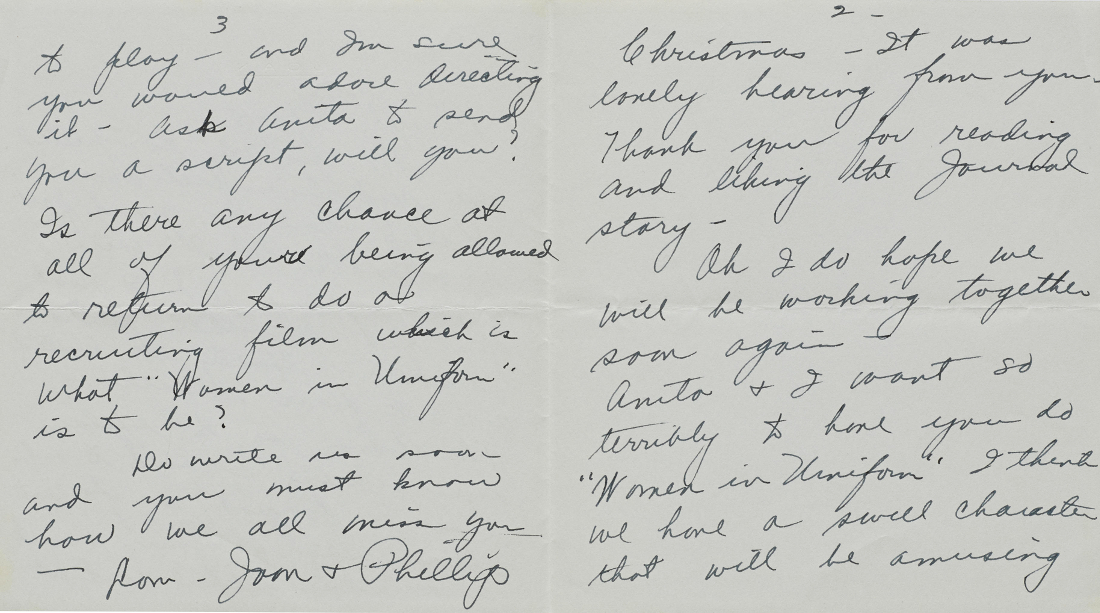 2 -
Christmas - It was
lovely hearing from you -
Thank you for reading
and liking the Journal
story -
Oh I do hope we
will be working together
soon again -
Anita + I want so
terribly to have you do
"Women in Uniform" I think
we have a swell character
that will be amusing
3
to play - and Im sure
you would adore directing
it - Ask Anita to send
you a script, will you?
Is there any chance at
all of your being allowed
to return to do a
recruiting film which is
what "Women in Uniform"
is to be?
Do write us soon
and you must know
how we all miss you
- Love - Joan + Phillip